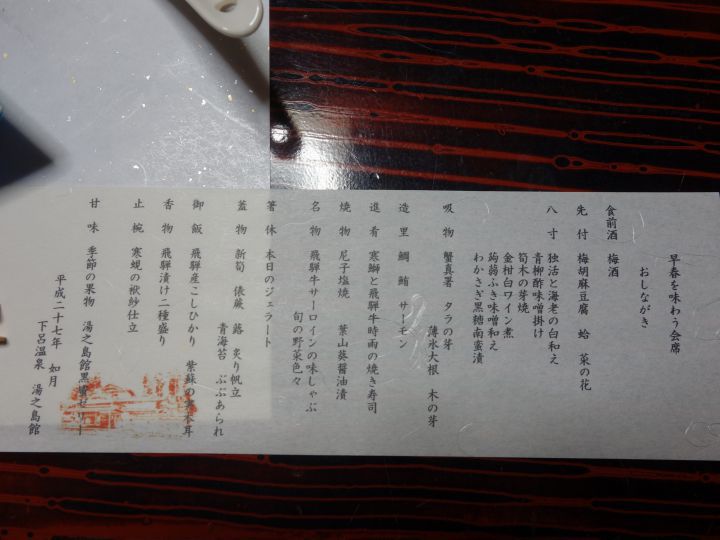 早春を味わう会席
おしながき
食前酒 梅酒
先付 梅胡麻豆腐 蛤 菜の花
八寸 独活と海老の白和え
青柳酢味噌掛け
筍木の芽焼
金柑白ワイン煮
蒟蒻ふき味噌和え
わかさぎ黒糖南蛮漬
吸物 蟹真薯 タラの芽
薄氷大根 木の芽
造里 鯛 鮪 サーモン
進肴 寒鰤と飛騨牛時雨の焼き寿司
焼物 尼子塩焼 葉山葵醤油漬
名物 飛騨牛サーロインの味しゃぶ
旬の野菜色々
箸休 本日のジェラート
蓋物 新筍 俵蕨 蕗 炙り帆立
青海苔 ぶぶあられ
御飯 飛騨産こしひかり 紫蘇の実木耳
香物 飛騨漬け二種盛り
止椀 寒蜆の袱紗仕立
甘味 季節の果物 湯之島館黒糖ゼリー
平成二十七年 如月
下呂温泉 湯之島館